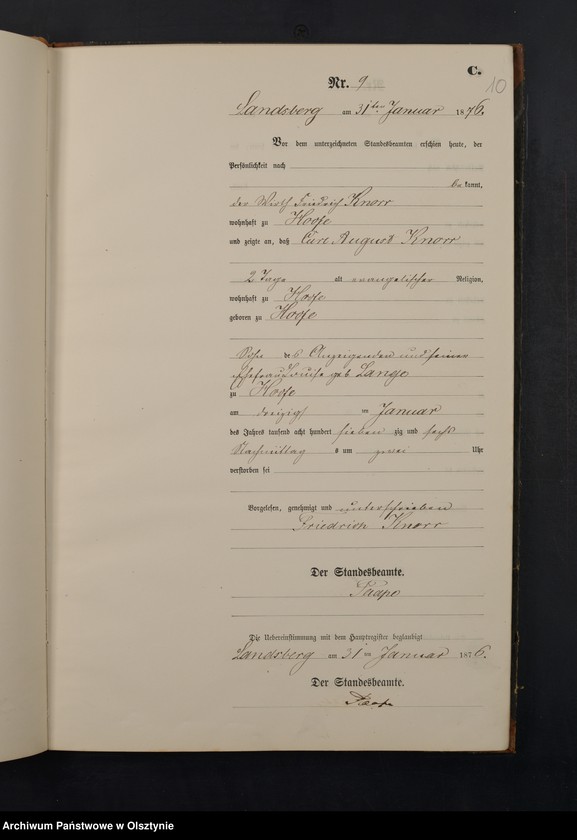 C.
10
Nr. 9
Landsberg am 31ten Januar 1876.
Vor dem unterzeichneten Standesbeamten erschien heute, der
Persönlichkeit nach
be kannt,
der Wirth Friedrich Knorr
wohnhaft zu Hoofe
und zeigte an, daß Curt August Knorr
2 Tage alt evangelischer Religion,
wohnhaft zu Hoofe
geboren zu Hoofe
Sohn des Anzeigenden und seiner
Ehefrau Louise geb Lange
zu Hoofe
am dreizigs ten Januar
des Jahres tausend acht hundert sieben zig und sechs
Nachmittag s um zwei Uhr
verstorben sei
Vorgelesen, genehmigt und unterschrieben
Friedrich Knorr
Der Standesbeamte.
Die Uebereinstimmung mit dem Hauptregister beglaubigt
Landsberg am 31 ten Januar 1876.
Der Standesbeamte.
Archiwum Państwowe w Olsztynie